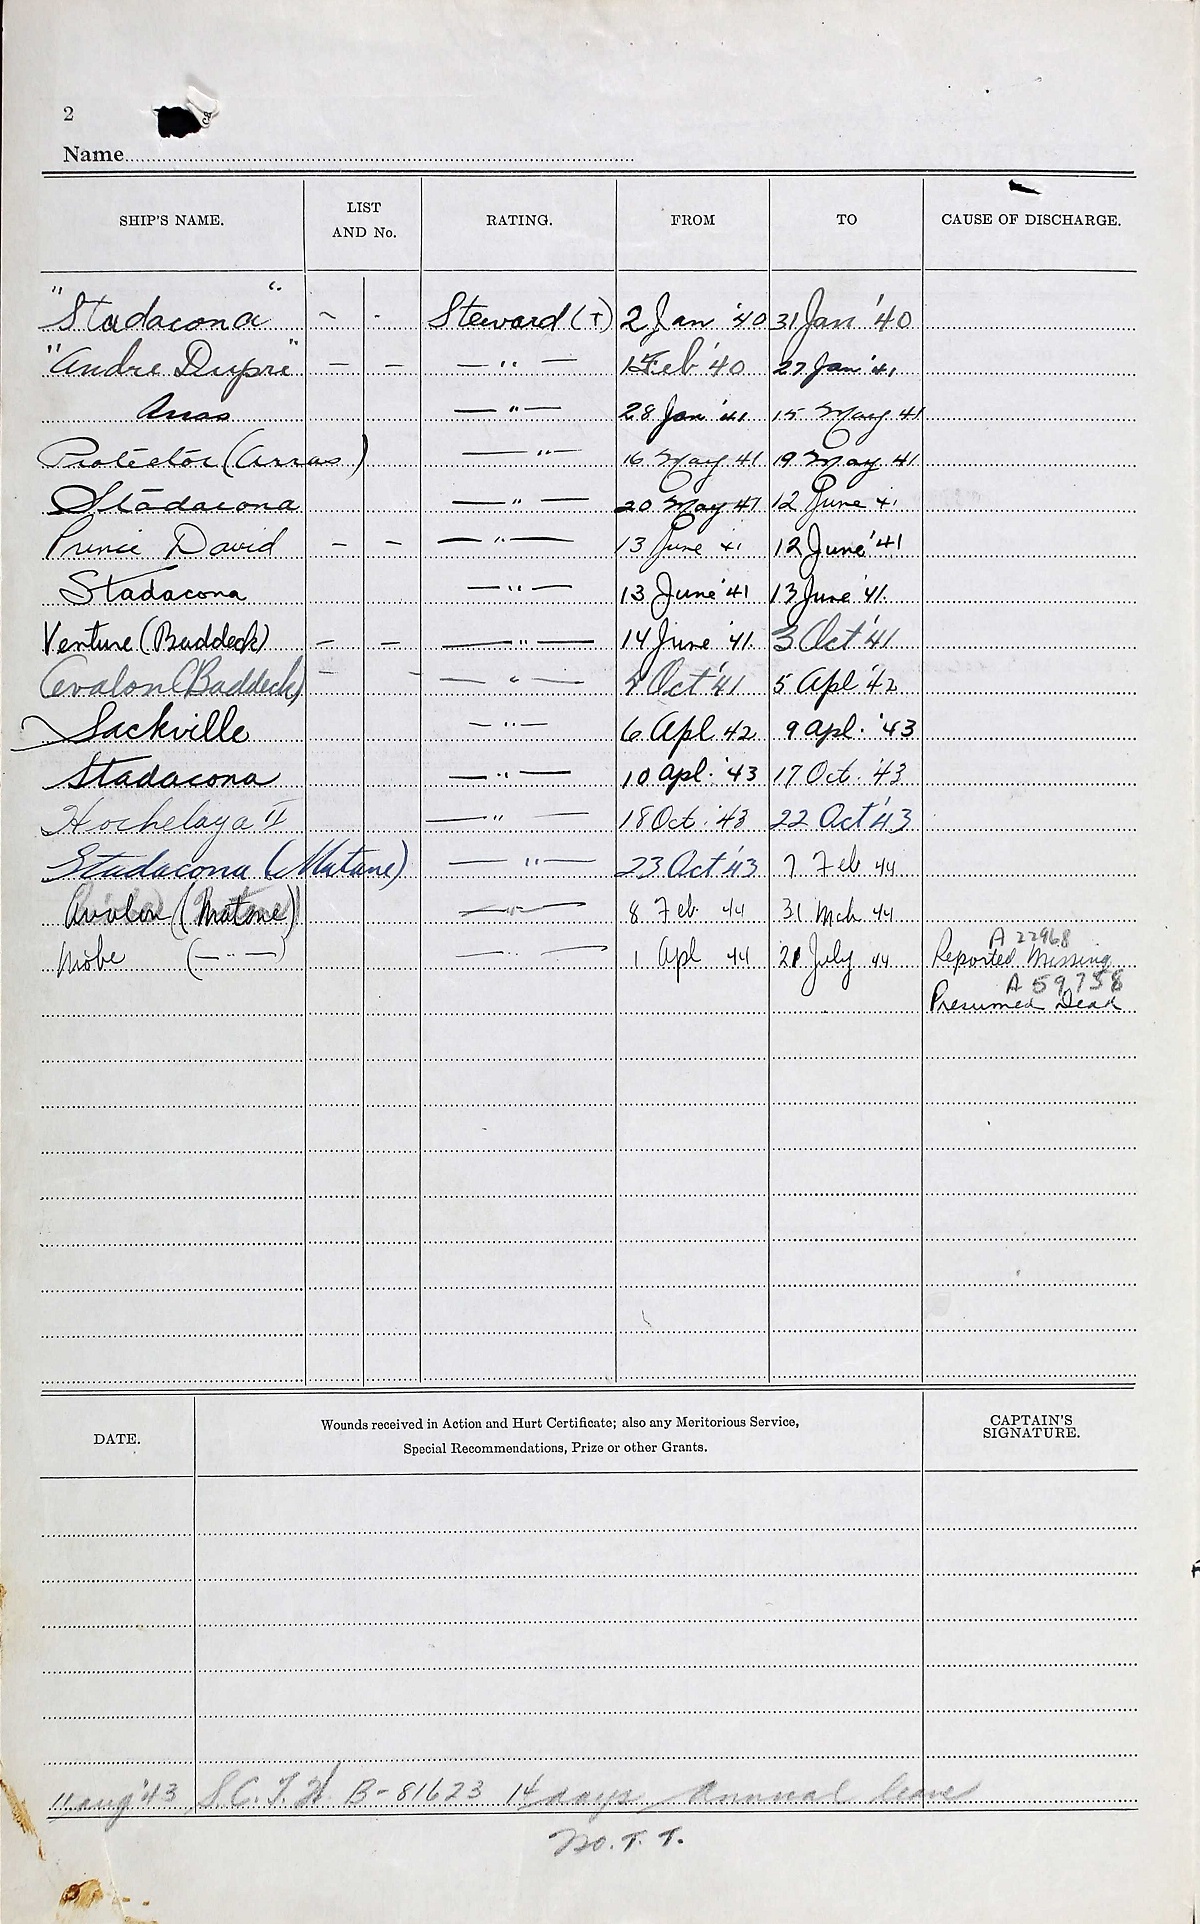 2
Name
SHIP'S NAME. LIST AND No. RATING. FROM TO CAUSE OF DISCHARGE.
"Stadacona" – - Steward (T) 2 Jan '40 31 Jan '40
"Andre Dupré" – – — " — 1 Feb '40 27 Jan '41
Arras — " — 28 Jan '41 15 May 41
Protector (Arras) — " — 16 May 41 19 May 41
Stadacona — " — 20 May 41 12 June 41
Prince David – – — " — 13 June 41 12 June '41
Stadacona — " — 13 June '41 13 June '41.
Venture (Baddeck) – – — " — 14 June '41. 3 Oct '41
Avalon (Baddeck) – – — " — Oct '41 5 Apl '42
Sackville — " — 6 Apl 42 9 Apl. '43
Stadacona — " — 10 Apl. '43 17 Oct. '43
Hochelaga II — " — 18 Oct. '43 22 Oct '43
Stadacona (Matane) — " — 23 Oct '43 7 Feb 44
Avalon (Matane) — " — 8 Feb 44 31 Mch 44
Niobe (— " —) — " — 1 Apl 44 21 July 44 A 22968
Reported Missing
A 59758
Presumed Dead
DATE. Wounds received in Action and Hurt Certificate; also any Meritorious Service, CAPTAIN'S
Special Recommendations, Prize or other Grants. SIGNATURE.
11 Aug '43 B-81623 14 days Annual leave
No. T. T.